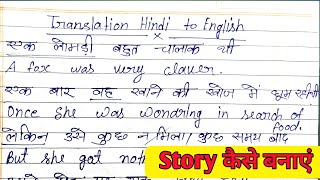 Translation Hindi to English
एक लोमड़ी बहुत चालाक थी
A fox was very claver.
एक बार वह खाने की खोज में घूम रही थी
Once she was wondring in search of food.
लेकिन उसे कुछ न मिला/ कुछ समय बाद
But she got
Story कैसे बनाएं